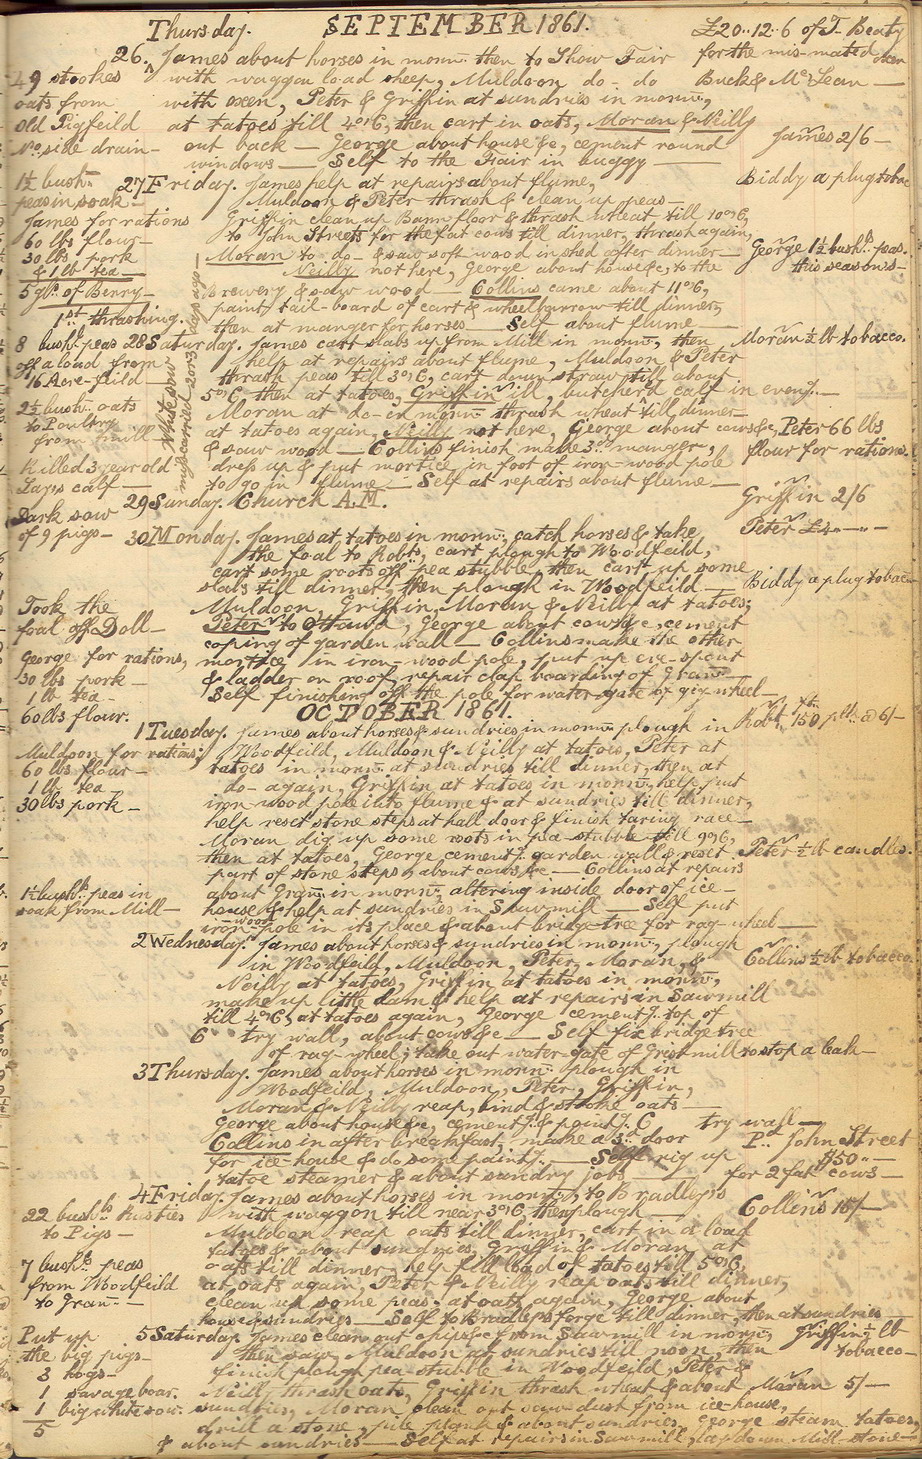 Thursday. SEPTEMBER 1861. £20..12..6 of T. Beaty
26. James about horses in mornⁿ: then to Show Fair for the mis-mated oxen
49 stookes with waggon load sheep, Muldoon do- do Buck & McLean —
oats from with oxen, Peter & Griffin at sundries in mornⁿ,
Old Pigfeild at tatoes till 4 o'C, then cart in oats, Moran & Neilly
No. side drain- out back — George about house &c, cement round James 2/6 —
windows — Self to the Fair in buggy —
1½ bushˢ 27 Friday. James help at repairs about flume, Biddy a plug tobac
peas in soak — Muldoon & Peter thrash & clean up peas —
James for rations Griffin clean up Barn floor & thrash wheat till 10 o'C,
60 lbs flour — to John Streets for the fat cows till dinner, thrash again,
30 lbs pork Moran to do- & saw soft wood in shed after dinner — George 1½ bushˢ peas.
& 1 lb tea — Neilly not here, George about house &c, to the this seasons —
5 glˢ of Benny — Brewery & saw wood — Collins came about 11 o'C,
1st thrashing. paint tail-board of cart & wheelburrow till dinner,
then at manger for horses — Self about flume —
8 bushˢ peas 28 Saturday. James cart slabs up from Mill in mornⁿ, then Moran ½ lb tobacco.
off a load from help at repairs about flume, Muldoon & Peter
16 Acre-feild — thrash peas till 3 o'C, cart down straw till about
5 o'C, then at tatoes, Griffin ill, butcher'd calf in eveng. —
2½ bushˢ oats Moran at do- in mornⁿ thrash wheat till dinner —
to Poultry at tatoes again, Neilly not here, George about cows &c, Peter 66 lbs
from mill — & saw wood — Collins finish make 3rd manger, flour for rations.
White sow miscarried 2 or 3 days ago —
Killed 3 year old dress up & put mortice in foot of iron-wood pole
Lays calf — to go in flume — Self at repairs about flume —
29 Sunday. Church A.M. Griffin 2/6
Dark sow
of 9 pigs — 30 Monday. James at tatoes in mornⁿ, catch horses & take Peter £4 — " —
the foal to Robts, cart plough to Woodfeild,
cart some roots off pea stubble, then cart up some
slabs till dinner, then plough in Woodfeild — Biddy a plug tobac
Took the Muldoon, Griffin, Moran & Neilly at tatoes,
foal off Doll — Peter to Ottawa, George about cows &c, cement
coping of garden wall — Collins make the other
George for rations, mortice in iron-wood pole, put up eve-spout
30 lbs pork — & ladder on roof, repair clap boarding of Grany —
1 lb tea — Self finishing off the pole for water-gate of gig wheel —
60 lbs flour. OCTOBER 1861.
1 Tuesday. James about horses & sundries in mornⁿ plough in Robt. 150 plts. @ 6/-
Muldoon for rations; Woodfeild, Muldoon & Neilly at tatoes, Peter at
60 lbs flour — tatoes in mornⁿ at sundries till dinner, then at
1 lb tea do- again, Griffin at tatoes in mornⁿ, help put
30 lbs pork — iron-wood pole into flume & at sundries till dinner,
help reset stone steps at hall door & finish taring race —
Moran dig up some roots in pea-stubble till 9 o'C,
then at tatoes, George cementg garden wall & reset Peter ½ lb candles.
part of stone steps & about cows &c — Collins at repairs
1½ bushˢ peas in about Grany in mornⁿ, altering inside door of ice-
soak from Mill — house & help at sundries in Sawmill — Self put
iron-wood pole in its place & about bridge-tree for rag-wheel —
2 Wednesday. James about horses & sundries in mornⁿ, plough
in Woodfeild, Muldoon, Peter, Moran, & Collins ½ lb tobacco.
Neilly at tatoes, Griffin at tatoes in mornⁿ,
make up little dam & help at repairs in Sawmill
till 4 o'C, at tatoes again, George cementg top of
C try wall, about cows &c — Self fix bridge tree
of rag-wheel, take out water-gate of Gristmill to stop a leak —
3 Thursday. James about horses in mornⁿ plough in
Woodfeild, Muldoon, Peter, Griffin,
Moran & Neilly reap, bind & stooke oats —
George about house &c, cementg & pointg C try wall —
Collins in after breakfast, make a 3rd door Pd. John Street
for ice-house & do some paintg — Self rig up $50.. —
tatoe steamer & about sundry jobs — for 2 fat cows —
4 Friday. James about horses in mornⁿ, to Bradley's
22 bushˢ Rusties with waggon till near 3 o'C, then plough — Collins 15/ —
to Pigs — Muldoon reap oats till dinner, cart in a load
tatoes & about sundries, Griffin & Moran at
7 bushˢ peas oats till dinner, help fill load of tatoes till 5 o'C,
from Woodfeild at oats again, Peter & Neilly reap oats till dinner,
to Grany — clean up some peas, at oats again, George about
house & sundries — Self to Bradleys forge till dinner, then at sundries
Put up 5 Saturday. James clean out chips &c from Sawmill in mornⁿ, Griffin ½ lb
the big pigs — then saw, Muldoon at sundries till noon, then tobacco —
3 hogs — finish plough pea-stubble in Woodfeild, Peter &
1 savage boar. Neilly thrash oats, Griffin thrash wheat & about Moran 5/ —
1 big white sow. sundries, Moran clean out saw dust from ice-house,
5 drill a stone, pile plank & about sundries, George steam tatoes,
& about sundries — Self at repairs in Sawmill, lay down Mill-stone —